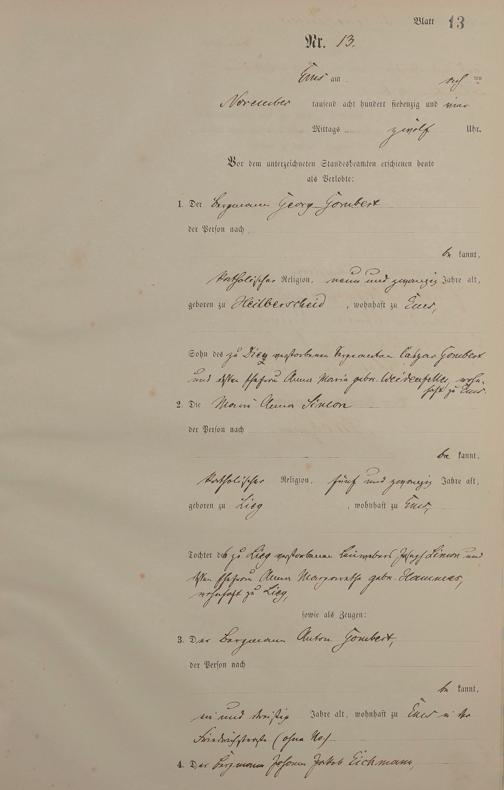 Blatt 13
Nr. 13.
Ems am
November tausend acht hundert siebenzig und vier
Mittags zwölf Uhr.
Vor dem unterzeichneten Standesbeamten erschienen heute
als Verlobte:
1. Der Bergmann Georg Gombert
der Person nach
be kannt,
katholischer Religion, neun und zwanzig Jahre alt,
geboren zu Heilberscheid, wohnhaft zu Ems,
Sohn des zu verstorbenen Bergmannes Caspar Gombert
und Ehefrau Anna Maria gebr. Weidenfeller, wohn-
haft zu Ems.
2. Die Maria Anna Simon
der Person nach
be kannt,
katholischer Religion, fünf und zwanzig Jahre alt,
geboren zu Lieg, wohnhaft zu Ems,
Tochter des zu Lieg verstorbenen Joseph Simon und
Ehefrau Anna Margaretha gebr. Hammes,
wohnhaft zu Lieg,
sowie als Zeugen:
3. Der Bergmann Anton Gombert,
der Person nach
be kannt,
ein und dreißig Jahre alt, wohnhaft zu Ems in der
Friedrichstraße (ohne No)
4. Der Bergmann Johann Jakob Eichmann,